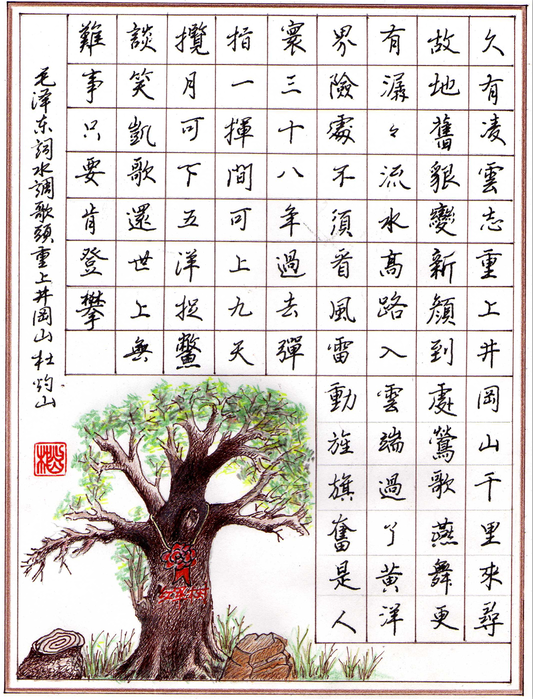 久有凌雲志重上井岡山千里來尋
故地舊貌變新顏到處鶯歌燕舞更
有潺々流水高路入雲端過了黃洋
界險處不須看風雷動旌旗奮是人
寰三十八年過去彈
指一揮間可上九天
攬月可下五洋捉鱉
談笑凱歌還世上無
難事只要肯登攀
毛泽东詞水調歌頭重上井岡山 杜灼山
红军树